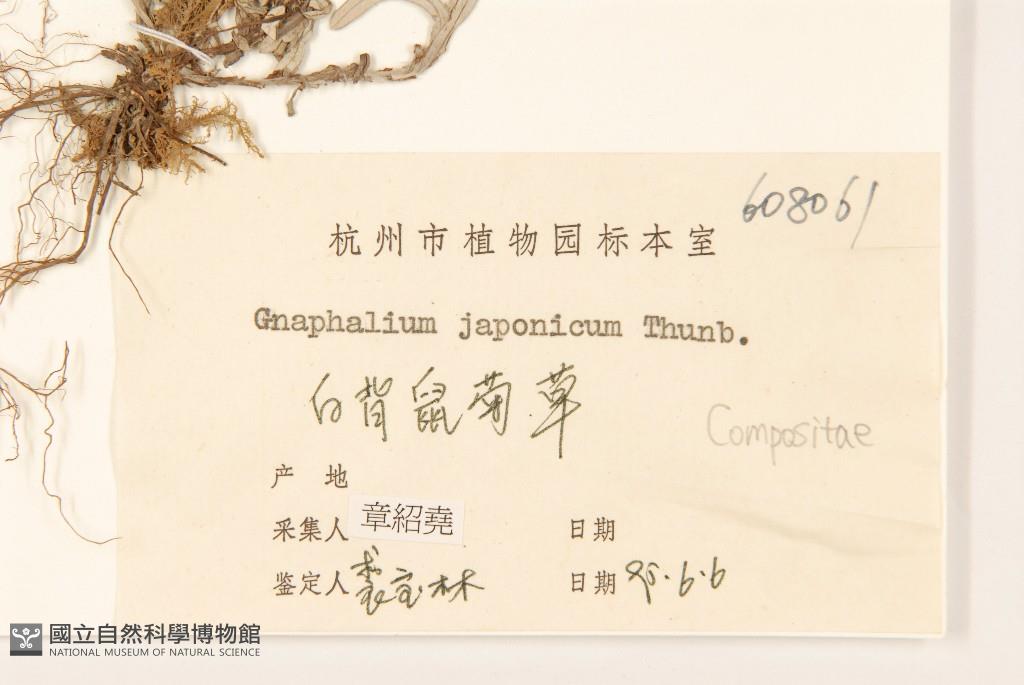 608061
杭州市植物园标本室
Gnaphalium japonicum Thunb.
白背鼠菊草
Compositae
产 地
采集人 章紹堯 日期
鉴定人 裘宝林 日期 95.6.6
國立自然科學博物館
NATIONAL MUSEUM OF NATURAL SCIENCE